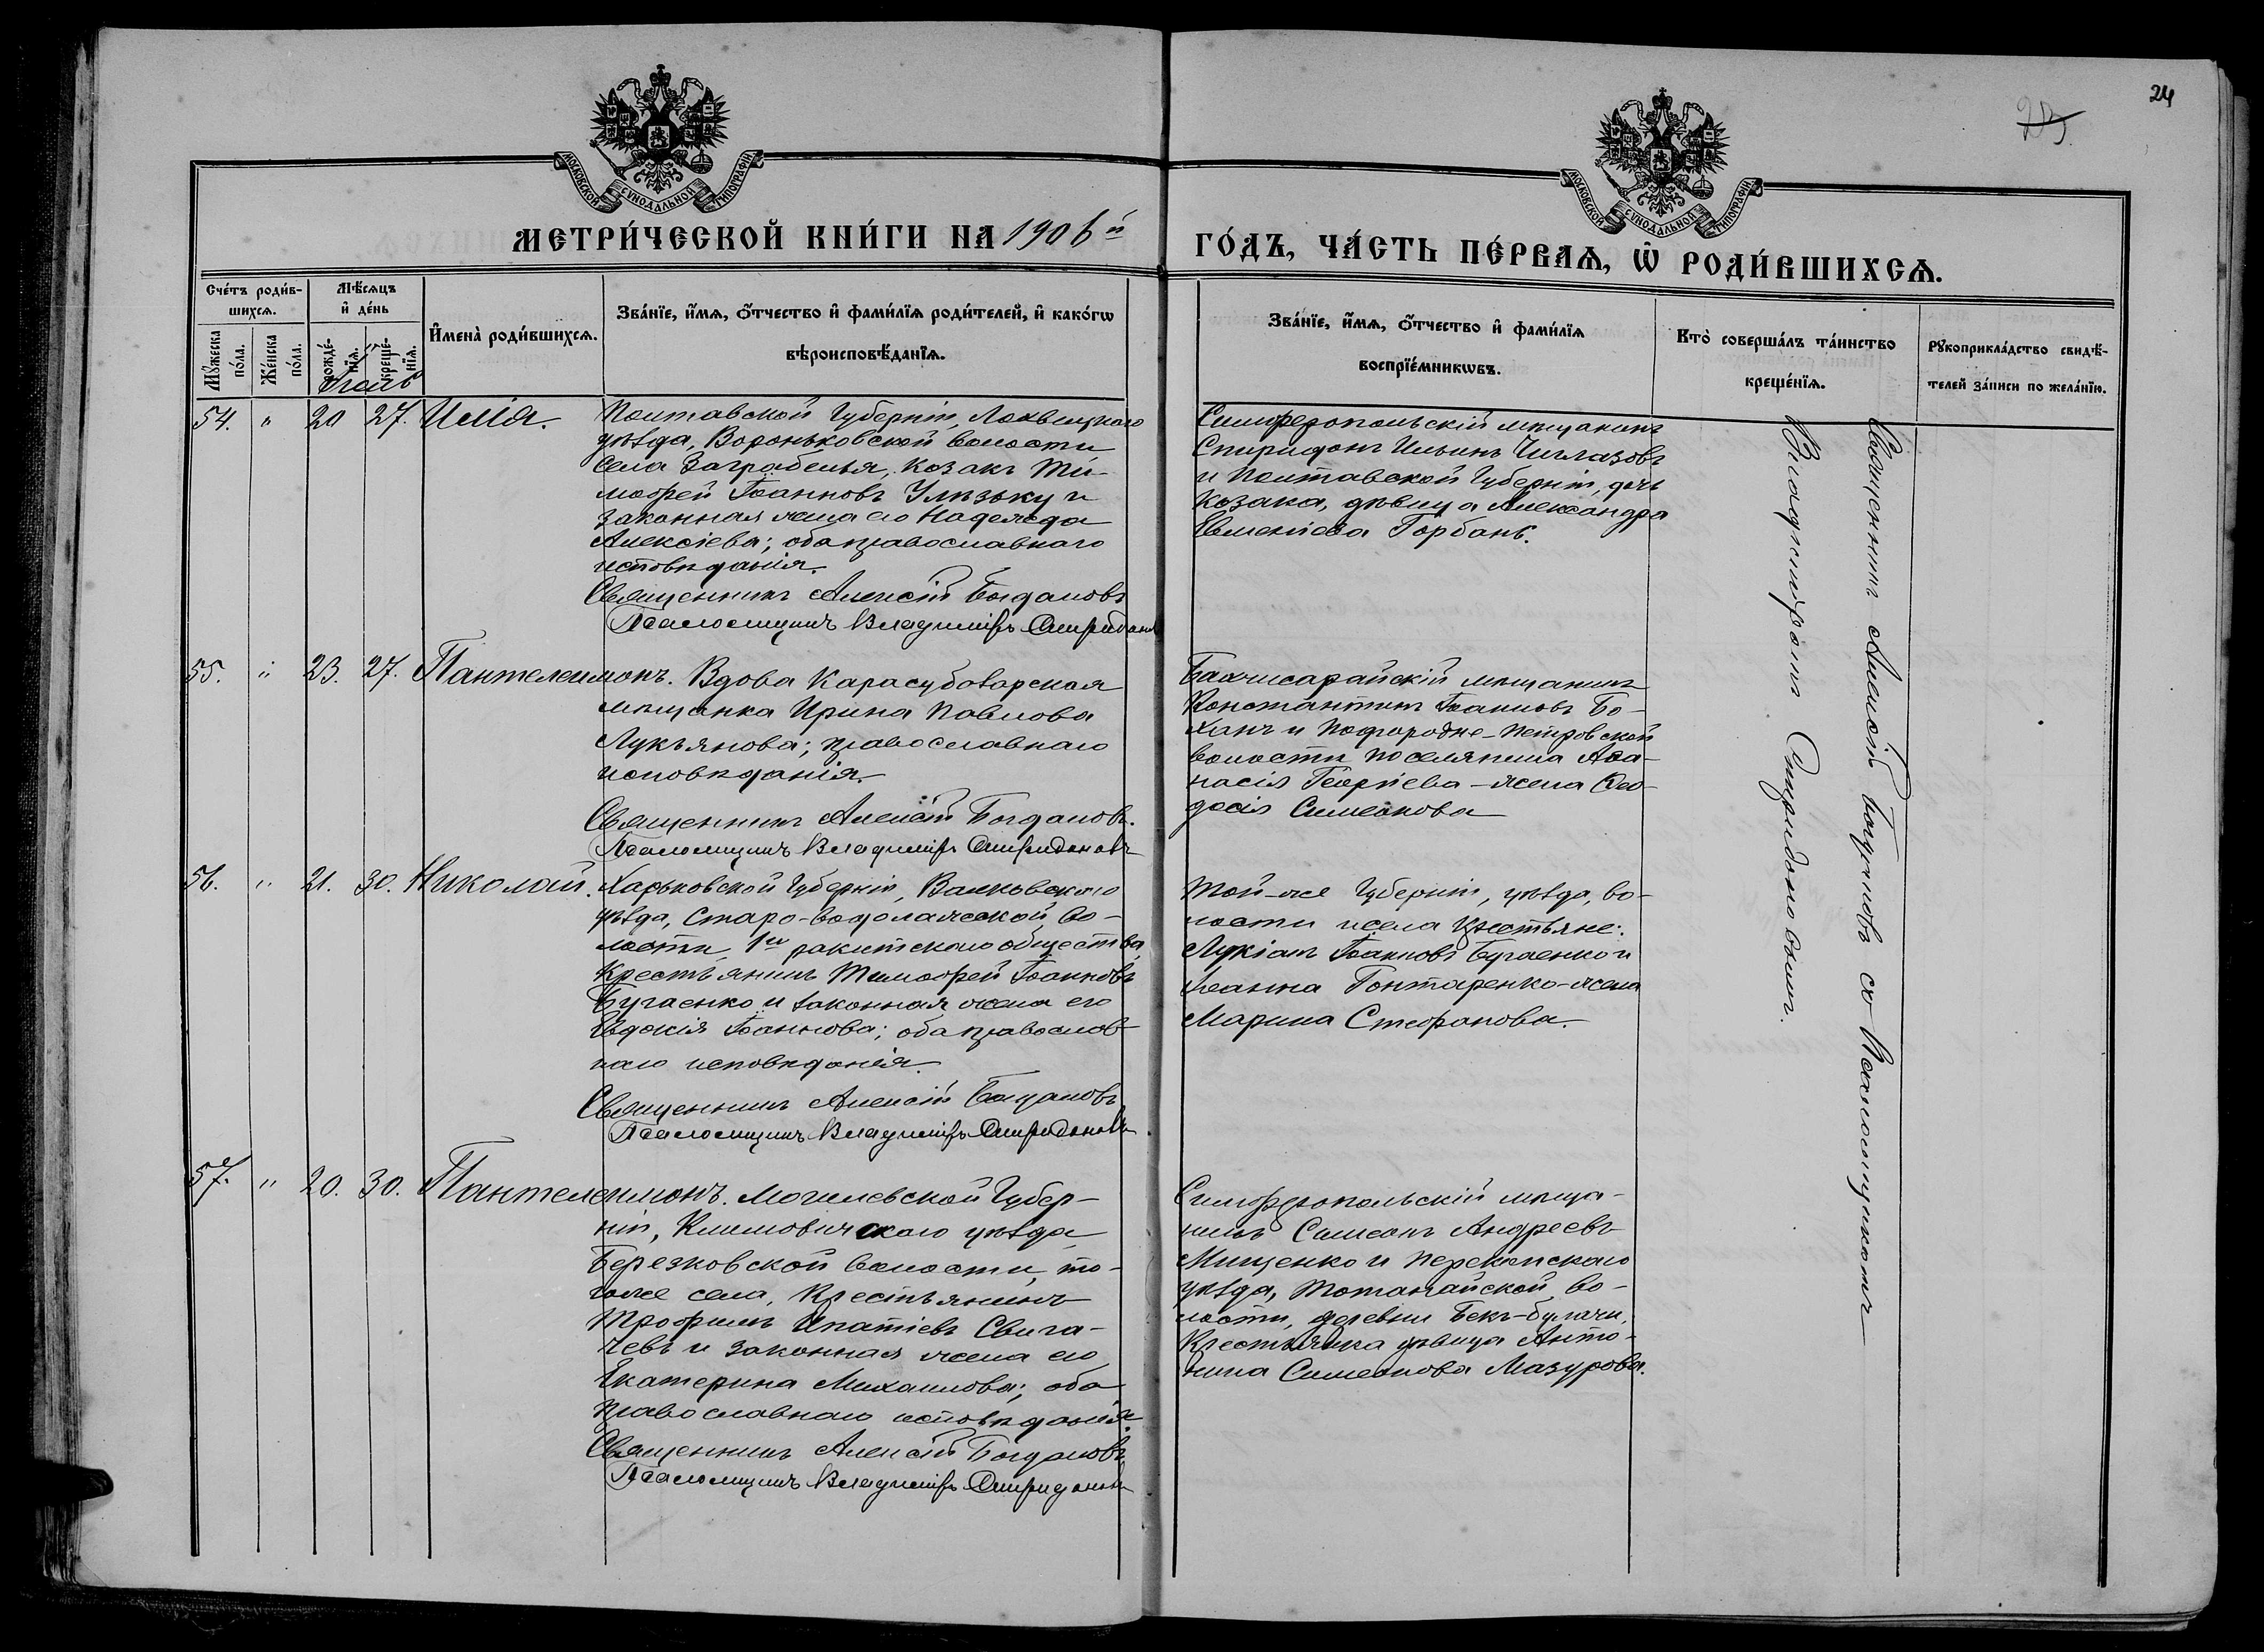 24
25
МОСКОВСКОЙ СУНОДАЛЬНОЙ ТИПОГРАФІИ
МОСКОВСКОЙ СУНОДАЛЬНОЙ ТИПОГРАФІИ
МЕТРИ́ЧЕСКОЙ КНИ́ГИ НА 1906й
ГО́ДЪ, ЧА́СТЬ ПЕ́РВАѦ, Ѡ҆ РОДИ́ВШИХСѦ.
Сче́тъ роди́в-
шихсѧ.
Мѣ́сѧцъ
и҆ де́нь
Мꙋ́жеска по́ла.
Же́нска по́ла.
рожде́-нїѧ.
креще́-нїѧ.
И҆мена̀ роди́вшихсѧ.
Зва́нїе, и҆́мѧ, ѻ҆́тчество и҆ фами́лїѧ роди́телей, и҆ како́гѡ
вѣроисповѣ́данїѧ.
Зва́нїе, и҆́мѧ, ѻ҆́тчество и҆ фами́лїѧ
воспрїе́мникѡвъ.
Кто̀ соверша́лъ та́инство
креще́нїѧ.
Рꙋкоприкла́дство свидѣ́-
телей за́писи по жела́нїю.
Іюль
54. " 20 27. Илія. Полтавской Губерніи, Лохвицкаго
уѣзда, Вороньковской волости
села Заграбелья, козакъ Ти-
моѳей Іоанновъ Улизько и
законная жена его Надежда
Алексіева; оба православнаго
исповѣданія.
Священникъ Алексій Богдановъ
Псаломщикъ Владиміръ Спиридоновъ
Симферопольскій мѣщанинъ
Спиридонъ Ильинъ Чиглазовъ
и Полтавской Губерніи, дочь
козака, дѣвица Александра
Евменіева Горбань.
55. " 23. 27. Пантелеимонъ. Вдова Карасубазарская
мѣщанка Ирина Павлова
Лукьянова; православнаго
исповѣданія.
Священникъ Алексій Богдановъ.
Псаломщикъ Владиміръ Спиридоновъ
Бахчисарайскій мѣщанинъ
Константинъ Іоанновъ Бо-
ханъ и Подгородне-Петровской
волости поселянина Аѳа-
насія Георгіева - жена Ѳео-
досія Симеонова
56. " 21. 30. Николай. Харьковской Губерніи, Валковскаго
уѣзда, Старо-водолажской во-
лости, 1го ракитскаго общества,
крестьянинъ Тимоѳей Іоанновъ
Бугаенко и законная жена его
Евдокія Іоаннова; оба православ-
наго исповѣданія.
Священникъ Алексій Богдановъ
Псаломщикъ Владиміръ Спиридоновъ
Той-же Губерніи, уѣзда, во-
лости и села крестьяне:
Лукіанъ Іоанновъ Бугаенко и
Іоанна Гонтаренко - жена
Марина Стефанова.
57. " 20. 30. Пантелеимонъ. Могилевской Губер-
ніи, Климовичскаго уѣзда
Березковской волости, то-
гоже села, крестьянинъ
Трофимъ Ипатіевъ Свига-
чевъ и законная жена его
Екатерина Михаилова; оба
православнаго исповѣданія.
Священникъ Алексій Богдановъ
Псаломщикъ Владиміръ Спиридоновъ
Симферопольскій мѣща-
нинъ Симеонъ Андреевъ
Мищенко и Перекопскаго
уѣзда, Тотанайской во-
лости, деревни Бекъ-булачи,
крестьянка дѣвица Анто-
нина Симеонова Мазурова.
Священникъ Алексій Богдановъ со Псаломщикомъ
Владиміромъ Спиридоновымъ.